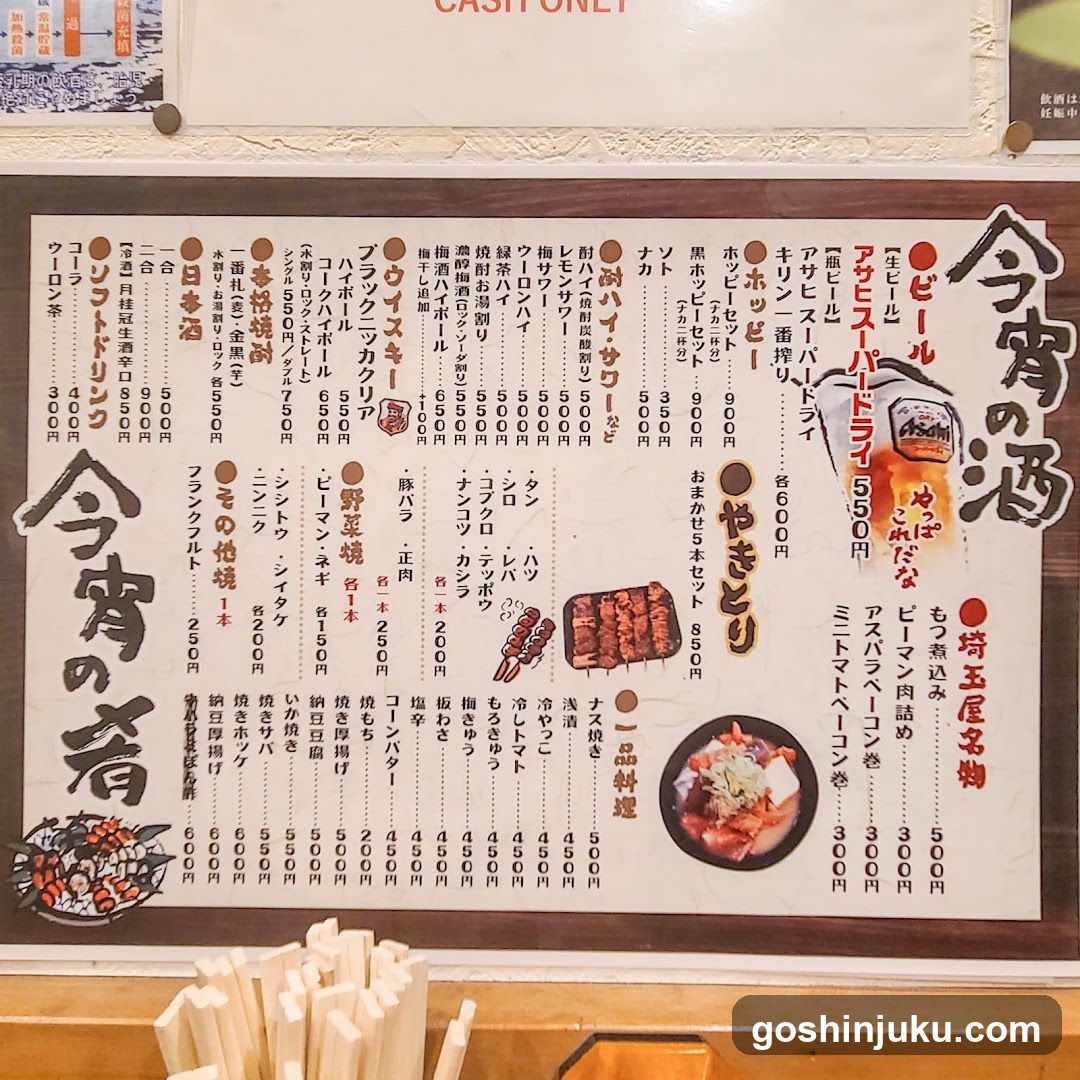 CASH ONLY
加熱殺菌
常温貯蔵
過
殺菌充填
乳期の飲酒は、胎児
飲酒は
妊娠中
今宵の酒
●ビール
【生ビール】
アサヒスーパードライ 550円
【瓶ビール】
アサヒスーパードライ
キリン一番搾り………各600円
やっぱ
これだな
Asahi
●ホッピー
ホッピーセット……900円
(ナカ二杯分)
黒ホッピーセット……900円
(ナカ二杯分)
ソト……350円
ナカ……500円
●酎ハイ・サワーなど
酎ハイ(焼酎炭酸割り) 500円
レモンサワー……500円
梅サワー……500円
ウーロンハイ……500円
緑茶ハイ……500円
焼酎お湯割り……550円
濃醇梅酒(ロック・ソーダ割り) 550円
梅酒ハイボール……650円
梅干し追加……+100円
●ウイスキー
ブラックニッカクリア
ハイボール 550円
コークハイボール 650円
(水割り・ロック・ストレート)
シングル550円/ダブル750円
●本格焼酎
一番札(麦)・金黒(芋)
水割り・お湯割り・ロック 各550円
●日本酒
一合……500円
二合……900円
【冷酒】月桂冠生酒辛口 850円
●ソフトドリンク
コーラ……400円
ウーロン茶……300円
今宵の肴
●埼玉屋名物
もつ煮込み……500円
ピーマン肉詰め……300円
アスパラベーコン巻……300円
ミニトマトベーコン巻……300円
●やきとり
おまかせ5本セット 850円
・タン ・ハツ
・シロ ・レバ
・コブクロ ・テッポウ
・ナンコツ ・カシラ
各一本 200円
・豚バラ ・正肉
各一本 250円
●野菜焼 各1本
・ピーマン・ネギ 各150円
・シシトウ ・シイタケ
・ニンニク 各200円
●その他焼 1本
フランクフルト……250円
●一品料理
ナス焼き……500円
浅漬……450円
冷やっこ……450円
冷しトマト……450円
もろきゅう……450円
梅きゅう……450円
板わさ……450円
塩辛……450円
コーンバター……450円
焼もち……200円
焼き厚揚げ……500円
納豆豆腐……500円
いか焼き……550円
焼きサバ……550円
焼きホッケ……600円
納豆厚揚げ……600円
600円
goshinjuku.com